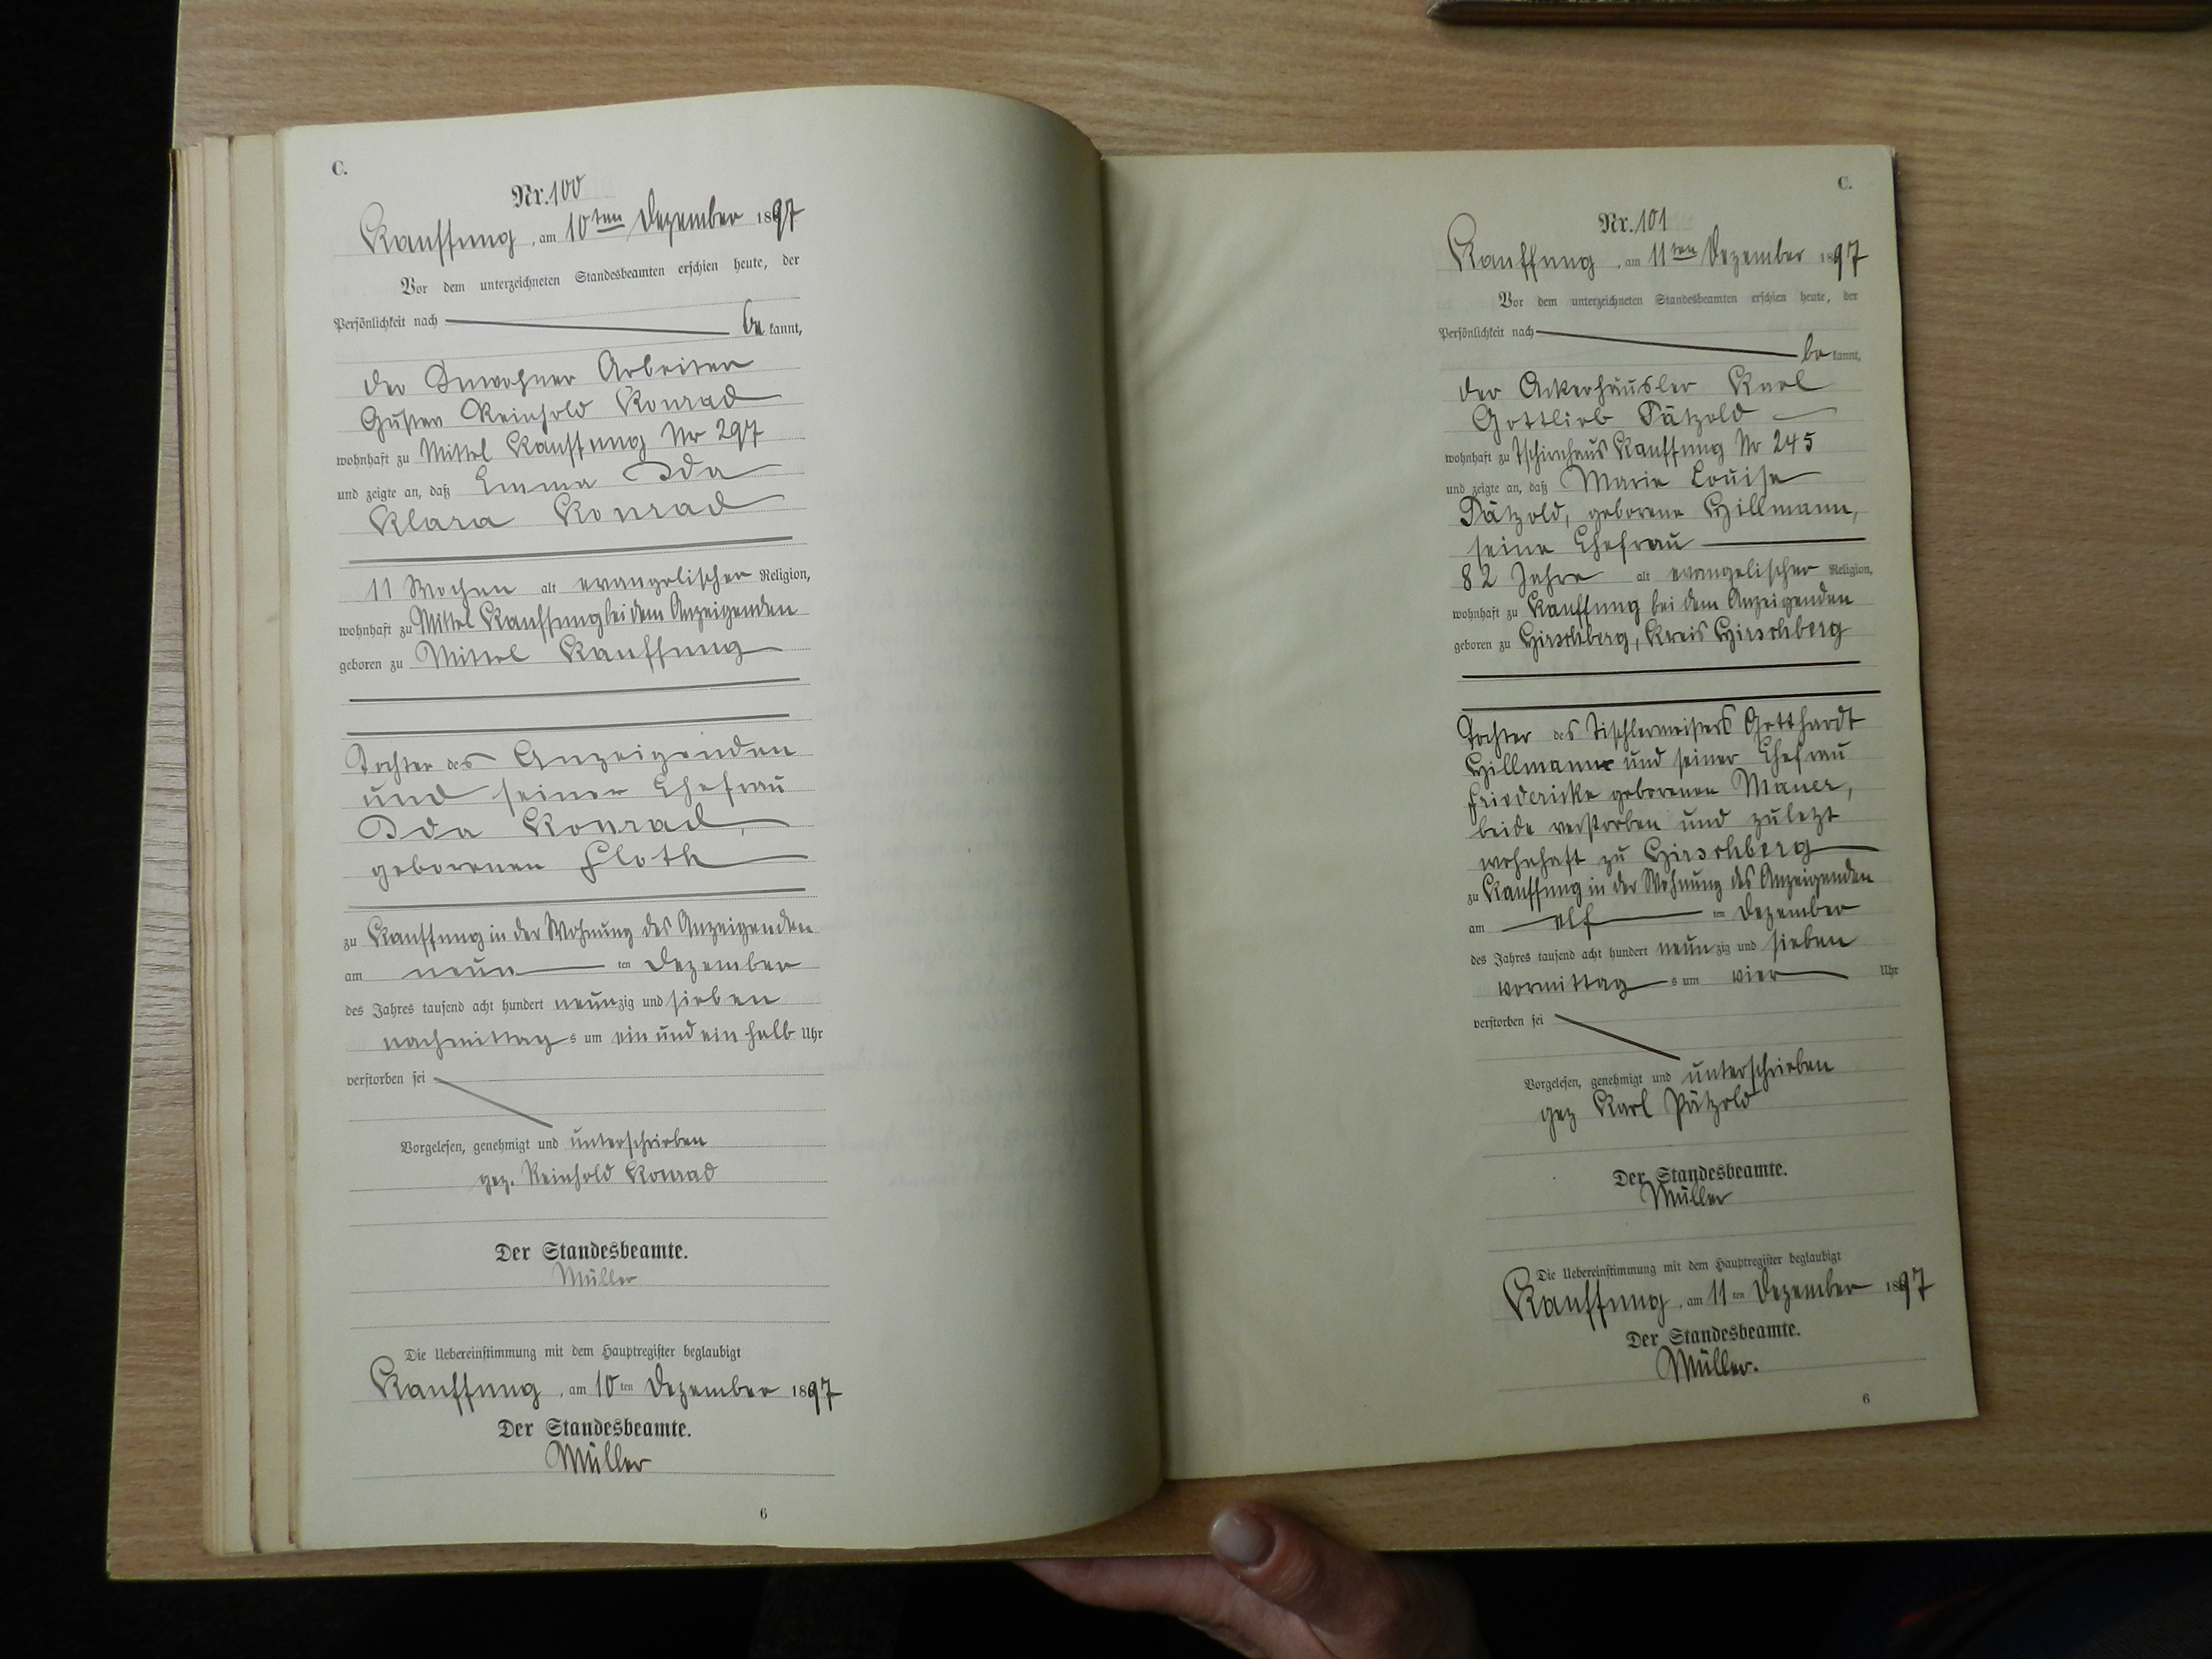 C.
Nr. 100
Kauffung, am 10ten Dezember 1897
Vor dem unterzeichneten Standesbeamten erschien heute, der
Persönlichkeit nach
be kannt,
der Inwohner Arbeiter
Gustav Reinhold Konrad
wohnhaft zu Mittel Kauffung Nr 297
und zeigte an, daß Emma Ida
Klara Konrad
11 Wochen alt evangelischer Religion,
wohnhaft zu Mittel Kauffung bei dem Anzeigenden
geboren zu Mittel Kauffung
Tochter des Anzeigenden
und seiner Ehefrau
Ida Konrad,
geborenen Floth
zu Kauffung in der Wohnung des Anzeigenden
am neun ten Dezember
des Jahres tausend acht hundert neunzig und sieben
nachmittag s um ein und ein halb Uhr
verstorben sei
Vorgelesen, genehmigt und unterschrieben
gez. Reinhold Konrad
Der Standesbeamte.
Müller
Die Uebereinstimmung mit dem Hauptregister beglaubigt
Kauffung, am 10ten Dezember 1897
Der Standesbeamte.
Müller
6
C.
Nr. 101
Kauffung, am 11ten Dezember 1897
Vor dem unterzeichneten Standesbeamten erschien heute, der
Persönlichkeit nach
be kannt,
der Ackerhäusler Karl
Gottlieb Pätzold
wohnhaft zu Tschirnhaus Kauffung Nr 245
und zeigte an, daß Marie Louise
Pätzold, geborene Hillmann,
seine Ehefrau
82 Jahre alt evangelischer Religion,
wohnhaft zu Kauffung bei dem Anzeigenden
geboren zu Hirschberg, Kreis Hirschberg
Tochter des Tischlermeisters Gotthardt
Hillmann und seiner Ehefrau
Friedericke geborenen Mauer,
beide verstorben und zuletzt
wohnhaft zu Hirschberg
zu Kauffung in der Wohnung des Anzeigenden
am elf ten Dezember
des Jahres tausend acht hundert neunzig und sieben
vormittag s um vier Uhr
verstorben sei
Vorgelesen, genehmigt und unterschrieben
gez Karl Pätzold
Der Standesbeamte.
Müller
Die Uebereinstimmung mit dem Hauptregister beglaubigt
Kauffung, am 11ten Dezember 1897
Der Standesbeamte.
Müller.
6